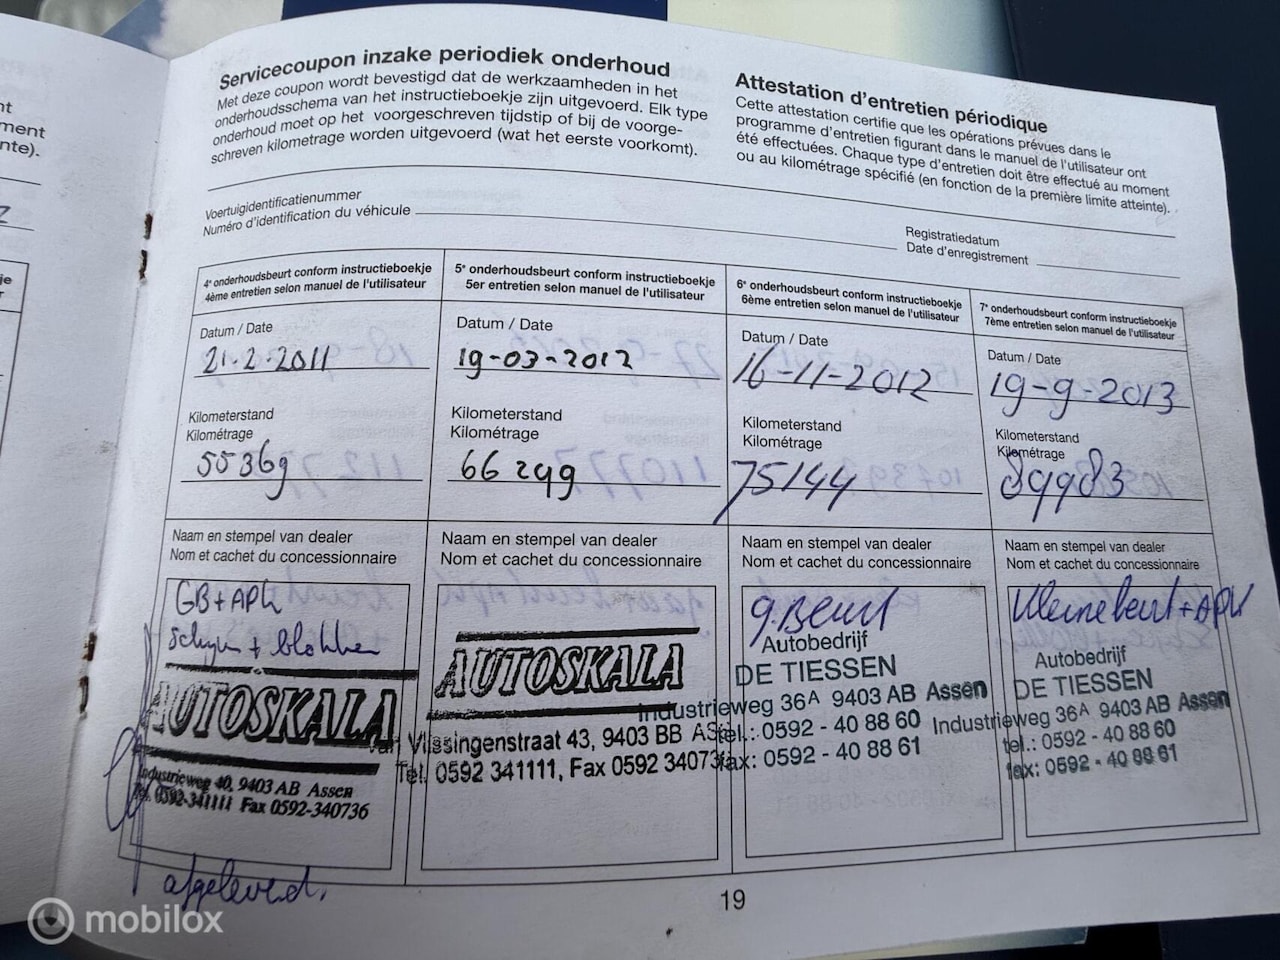 nt
ment
nte).
Z
je
r
Servicecoupon inzake periodiek onderhoud
Met deze coupon wordt bevestigd dat de werkzaamheden in het
onderhoudsschema van het instructieboekje zijn uitgevoerd. Elk type
onderhoud moet op het voorgeschreven tijdstip of bij de voorge-
schreven kilometrage worden uitgevoerd (wat het eerste voorkomt).
Attestation d'entretien périodique
Cette attestation certifie que les opérations prévues dans le
programme d'entretien figurant dans le manuel de l'utilisateur ont
été effectuées. Chaque type d'entretien doit être effectué au moment
ou au kilométrage spécifié (en fonction de la première limite atteinte).
Voertuigidentificatienummer
Numéro d'identification du véhicule
Registratiedatum
Date d'enregistrement
4e onderhoudsbeurt conform instructieboekje
4ème entretien selon manuel de l'utilisateur
Datum / Date
21-2-2011
Kilometerstand
Kilométrage
55369
Naam en stempel van dealer
Nom et cachet du concessionnaire
GB+APK
+ blokken
AUTOSKALA
Industrieweg 40, 9403 AB Assen
Tel. 0592-341111 Fax 0592-340736
afgeleverd.
5e onderhoudsbeurt conform instructieboekje
5er entretien selon manuel de l'utilisateur
Datum / Date
19-03-2012
Kilometerstand
Kilométrage
66299
Naam en stempel van dealer
Nom et cachet du concessionnaire
AUTOSKALA
Vlissingenstraat 43, 9403 BB AS
Tel. 0592 341111, Fax 0592 34073
6e onderhoudsbeurt conform instructieboekje
6ème entretien selon manuel de l'utilisateur
Datum / Date
16-11-2012
Kilometerstand
Kilométrage
75144
Naam en stempel van dealer
Nom et cachet du concessionnaire
g. Beurt
Autobedrijf
DE TIESSEN
Industrieweg 36A 9403 AB Assen
tel.: 0592 - 40 88 60
fax: 0592 - 40 88 61
7e onderhoudsbeurt conform instructieboekje
7ème entretien selon manuel de l'utilisateur
Datum / Date
19-9-2013
Kilometerstand
Kilométrage
89983
Naam en stempel van dealer
Nom et cachet du concessionnaire
Kleine beurt + APK
Autobedrijf
DE TIESSEN
Industrieweg 36A 9403 AB Assen
tel.: 0592 - 40 88 60
fax: 0592 - 40 88 61
19
mobilox